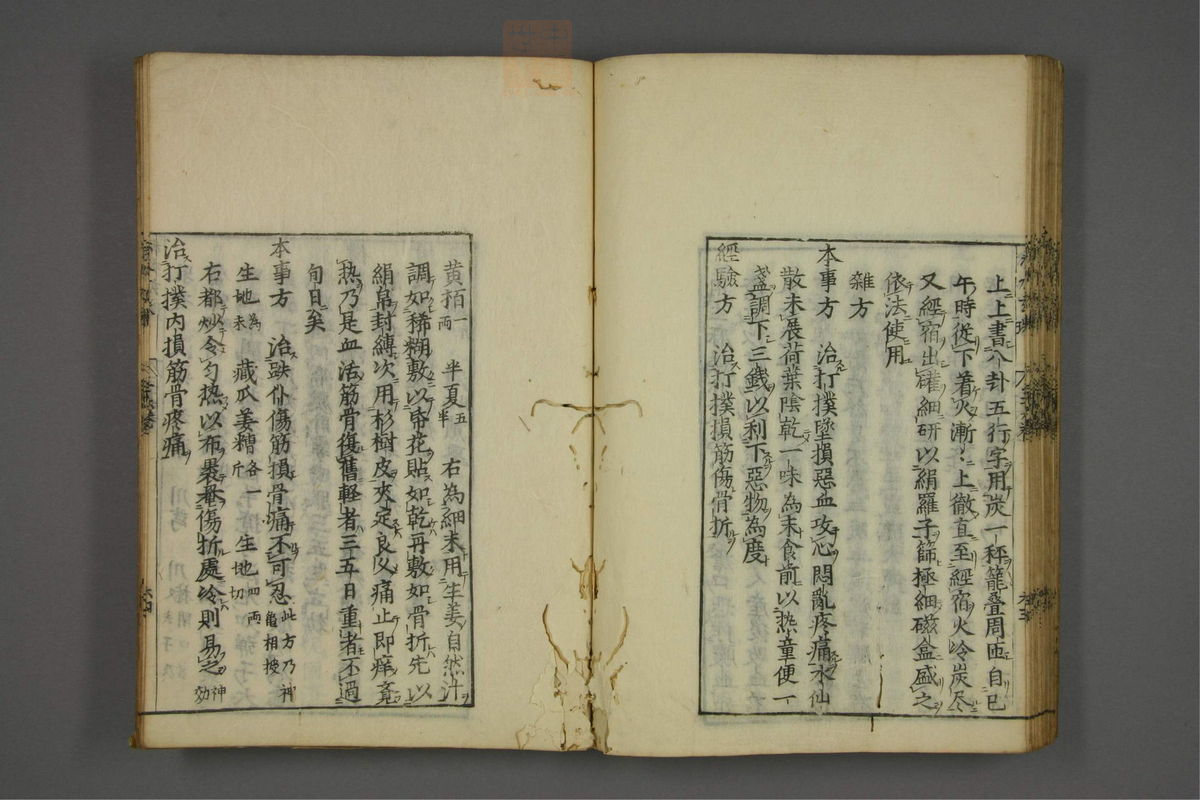 上上書八卦五行字用炭一秤籠疊周匝自巳
午時從下着火漸〻上徹直至經宿火冷炭尽
又經宿出礶細研以絹羅子篩極細磁盒盛之
依法使用
雜方
本事方 治打撲墜損惡血攻心悶亂疼痛水仙
散未展荷葉陰乾一味為末食前以热童便一
盞調下三錢以利下惡物為度
經驗方 治打撲損筋傷骨折
黄栢一両 半夏五半 右為細末用生姜自然汁
調如稀糊敷以帋花貼如乾再敷如骨折先以
絹帛封縛次用杉樹皮夾定良久痛止即痒竟
热乃是血活筋骨復舊軽者三五日重者不過
旬日矣
本事方 治跌仆傷筋損骨痛不可忍此方乃神龜相授
生地為末 藏瓜姜糟各一斤 生地四両切
右都炒令匀热以布裹罨傷折處冷則易之神効
治打撲内損筋骨疼痛